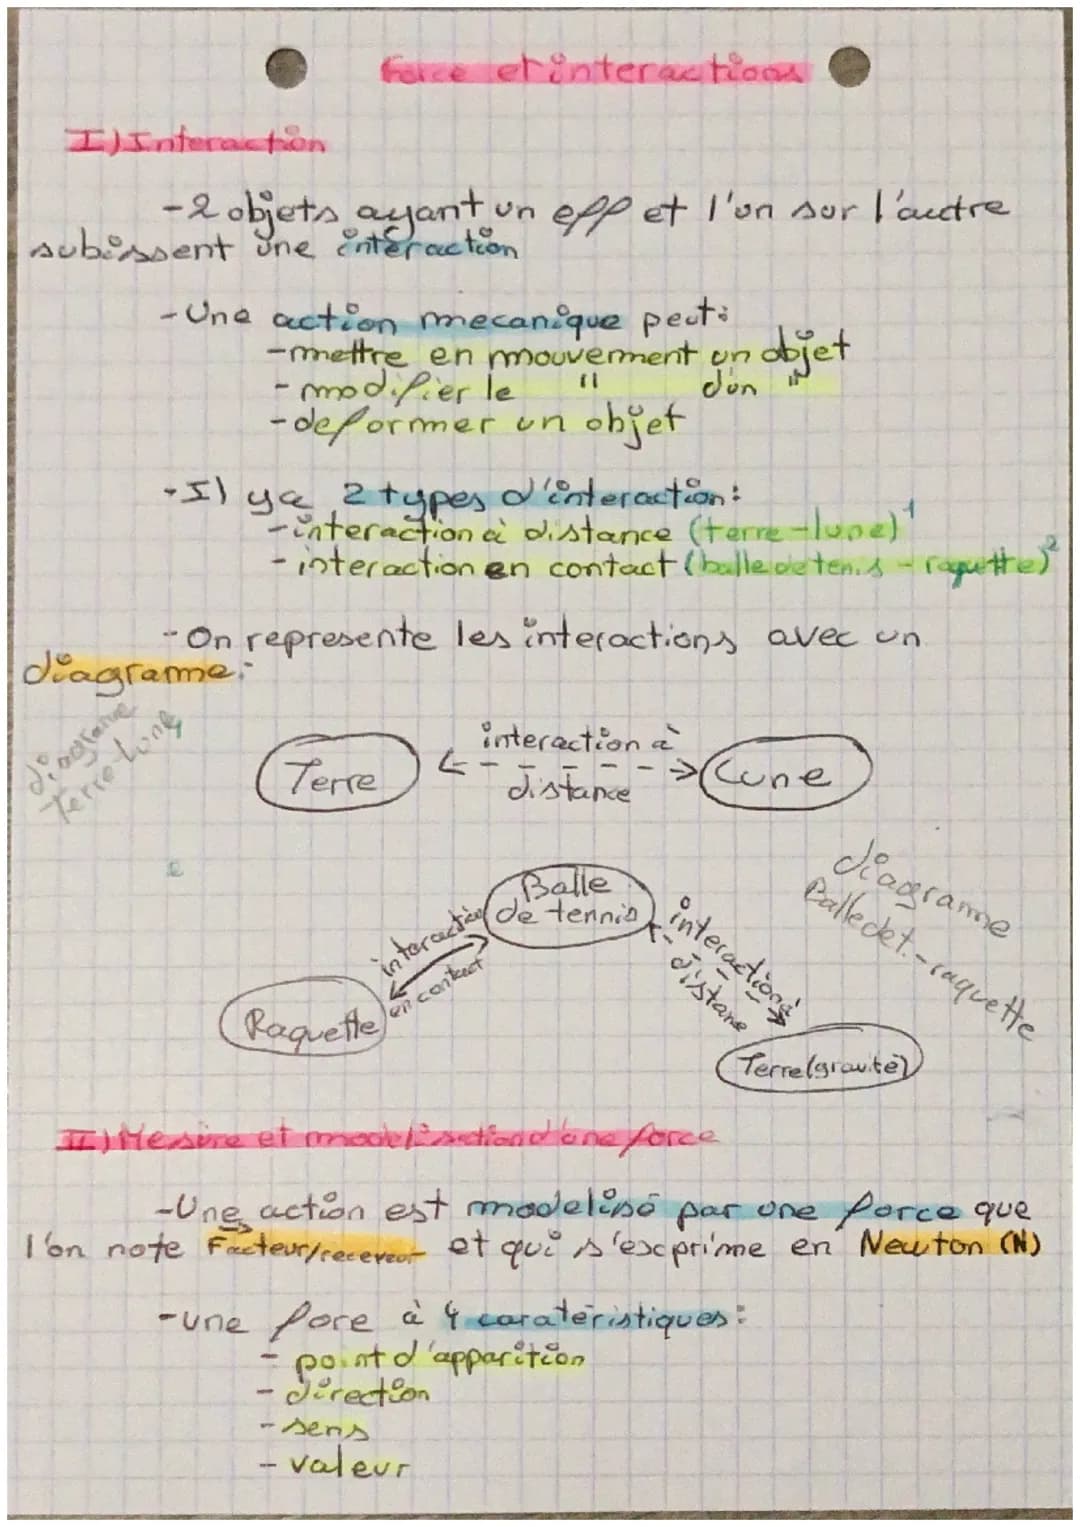 Force et interactions
I) Interaction
- 2 objets ayant un eff et l'un sur l'autre
subissent une interaction
- Une action mecanique peut:
- mettre en mouvement un objet
- modifier le " d'un "
- deformer un objet
- Il y a 2 types d'interaction:
- interaction à distance (terre-lune)¹
- interaction en contact (balle de tenis - raquette)²
- On represente les interactions avec un
diagramme:
diagrame
Terre-Lune
interaction à
Terre
Lune
distance
e
diagramme
Balle de t.-raquette
Balle
de tennis
interaction
en contact
interaction à
distane
Raquette
Terre (gravité)
II) Mesure et modelisation d'une force
- Une action est modelisé par une force que
l'on note Facteur/receveur et qui s'exprime en Newton (N)
- une fore à 4 caratéristiques:
- point d'apparition
- direction
- sens
- valeur